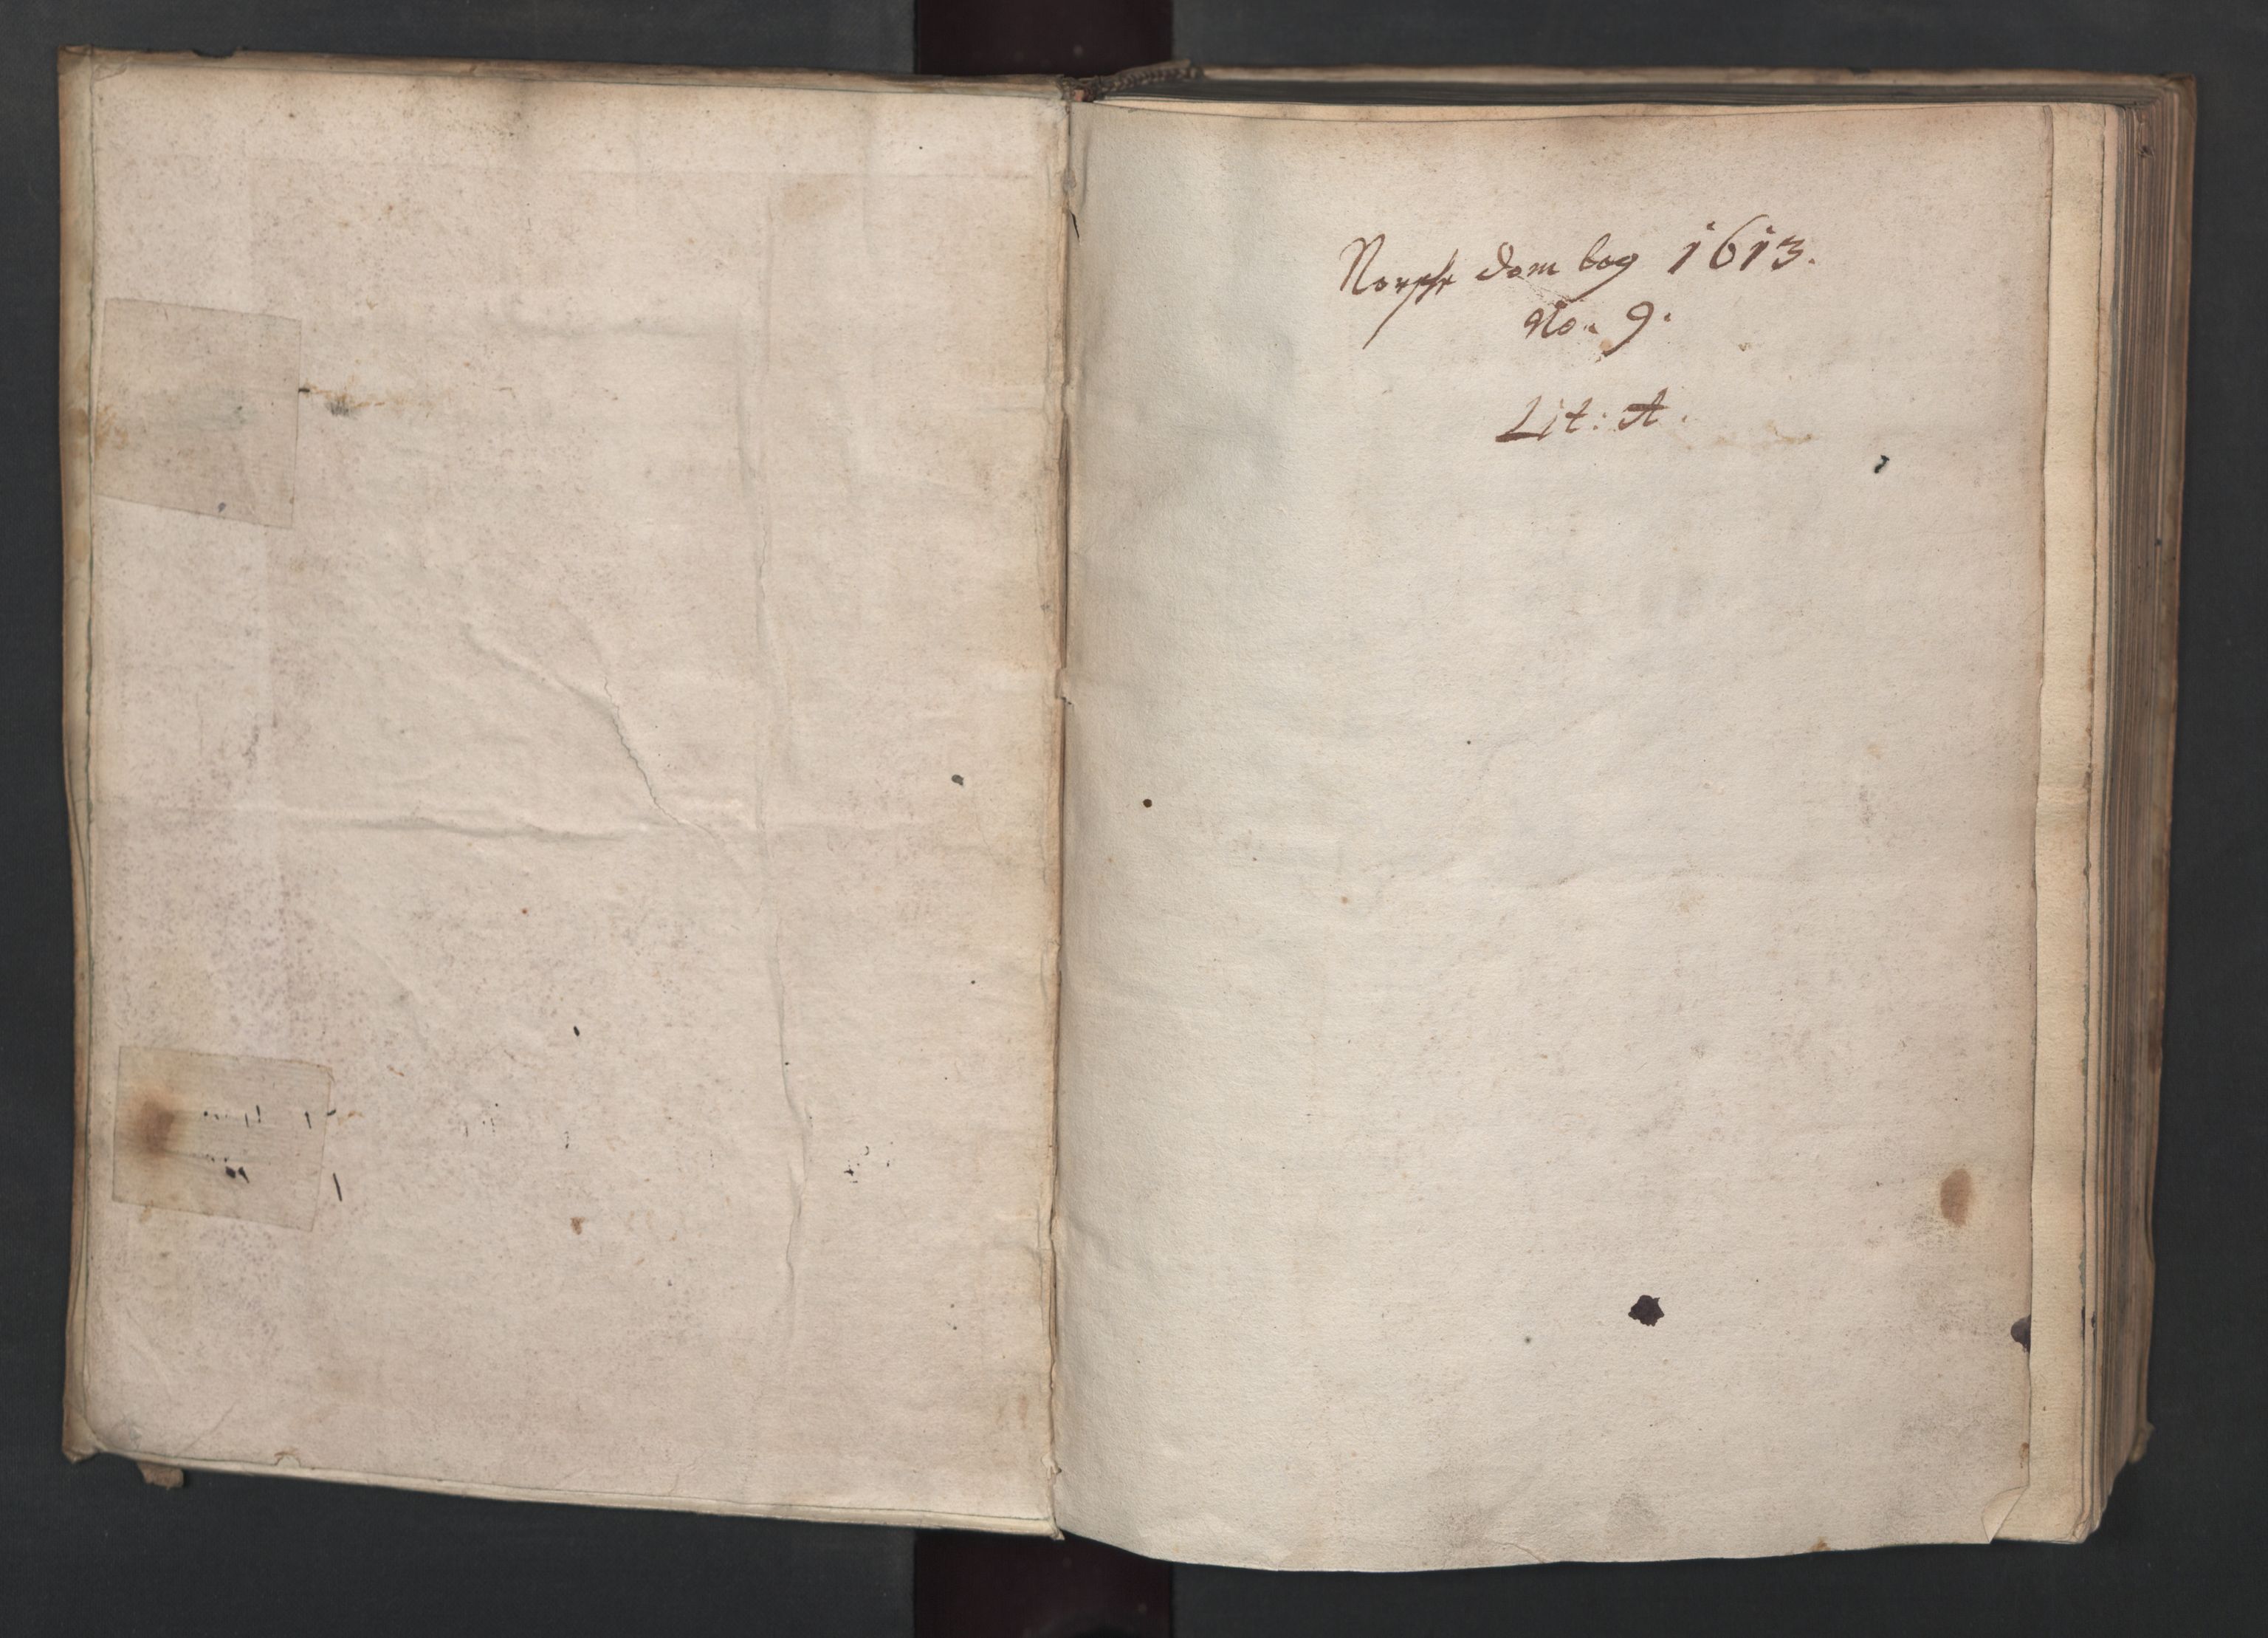 Norsche dom bog 1613.
No. 9.
Lit: A.